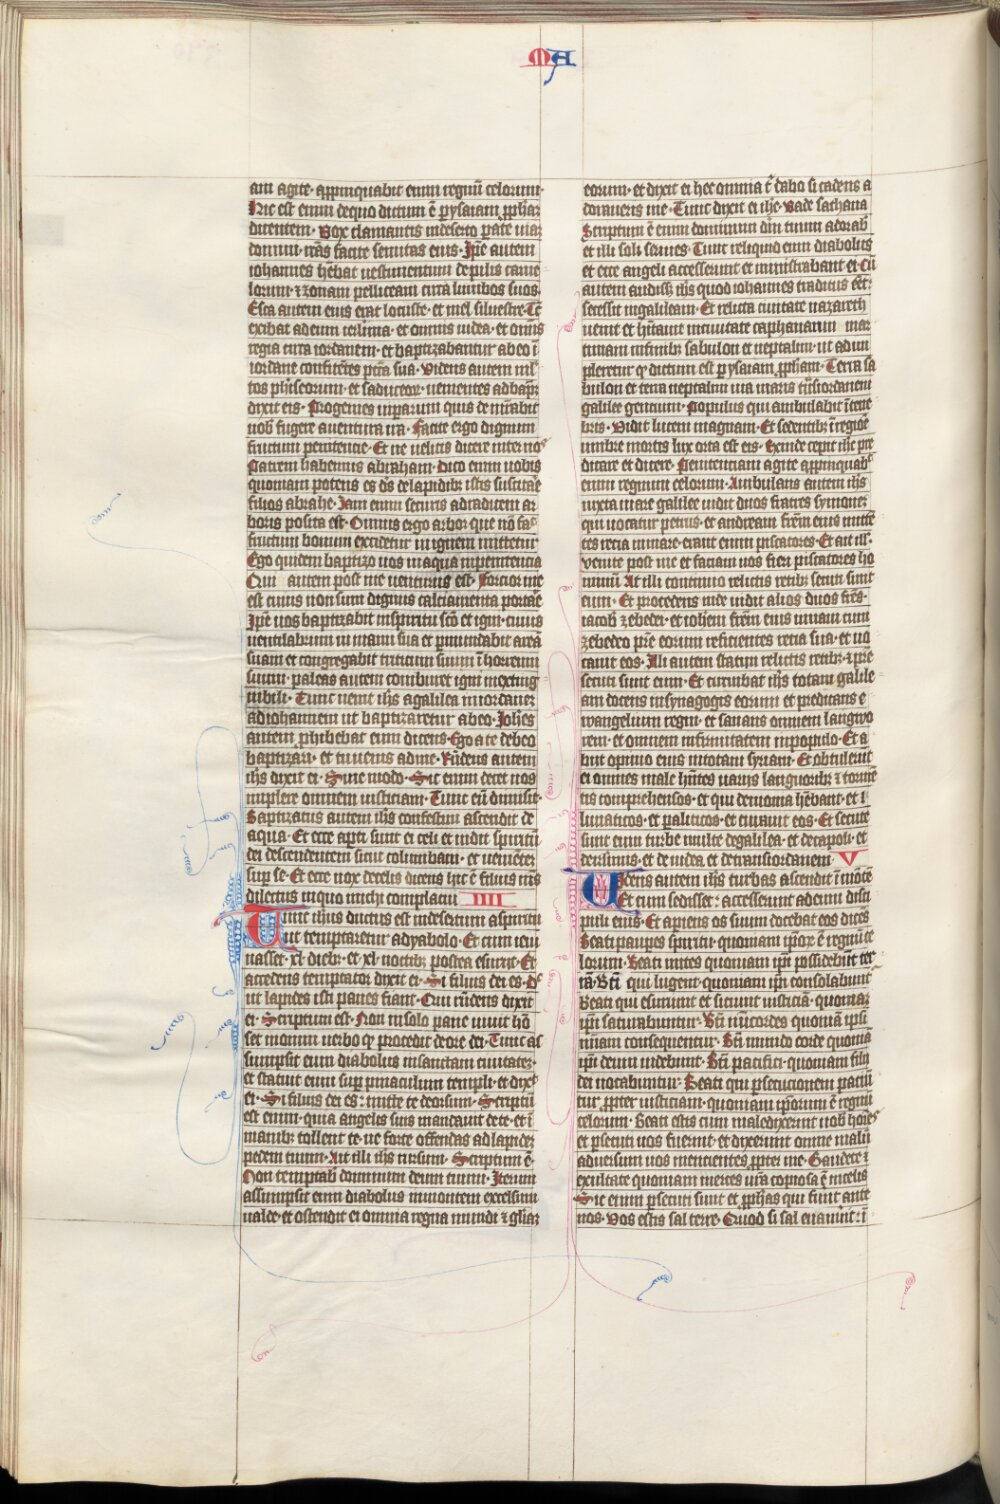 MA
am agite· appinquabit enim regnū celorum·
Hic est enim dequo dictum ē p ysaiam pphaz
dicentem· Vox clamantis indeserto parate uiaz
domini· rectas facite semitas eius· Ipē autem
iohannes hēbat uestimentum depilis came
lorum· ⁊ zonam pelliceam circa lumbos suos·
Esca autem eius erat locuste· et mel siluestre· Tc̄
exibat ad eum ierlima· et omnis iudea· et om̄is
regio circa iordanem· et baptizabantur abeo ī
iordane confitētes pctā sua· Videns autem ml̄
tos phiseorum· et saduceoꝝ· uenientes adbapz
dixit eis· Progenies uiperarum quis dem̄rabit
uob̄ fugere auentura ira· Facite ergo dignum
fructum penitencie· Et ne uelitis dicere inter uos
Patrem habemus abraham· Dico enim uobis
quoniam potens ē ds̄ delapidibꝫ istis suscitāe
filios abrahe· Iam enim securis adradicem ar
boris posita est· Omnis ergo arbor que nō fac̄
fructum bonum excidetur in ignem mittetur
Ego quidem baptizo uos in aqua inpenitentia
Qui autem post me uenturus est· Forcior me
est cuius non sum dignus calciamenta portāe
Ipē uos baptizabit inspiritu scō et igni· cuius
uentilabrum in manu sua et pmundabit areā
suam et congregabit triticum suum ī horreum
suum· paleas autem comburet igni inexting
uibili· Tunc uenit ihs agalilea in iordanez
adiohannem ut baptizaretur abeo· Iohēs
autem phibebat eum dicens· Ego a te debeo
baptizari· et tu uenis adme· Rn̄dens autem
ihs dixit ei· Sine modo· Sic enim decet nos
implere omnem iusticiam· Tunc eū dimisit·
Baptizatus autem ihs confestim ascendit de
aqua· Et ecce apti sunt ei celi et uidit spiritū
dei descendentem sicut columbam· et uenietēz
sup se· Et ecce uox decelis dicens hic ē filius m̄s
dilectus inquo michi complacui IIII
Tunc ihus ductus est indesertum aspiritu
ut temptaretur adyabolo· Et cum ieiu
nasset xl diebꝫ· et xl noctibꝫ postea esuriit· Et
accedens temptator dixit ei· Si filius dei es· dic̄
ut lapides isti panes fiant· Qui rn̄dens dixit
ei· Scriptum est· Non in solo pane uiuit hō
set inomni uerbo qꝫ procedit deore dei· Tunc as
sumpsit eum diabolus insanctam ciuitatez·
et statuit eum sup pinaculum templi· et dixit
ei· Si filius dei es: mitte te deorsum· Scriptū
est enim· quia angelis suis mandauit dete· et ī
manibꝫ tollent te· ne forte offendas ad lapidez
pedem tuum· Ait illi ihs rursum· Scriptum ē·
Non temptab̄ dominum deum tuum· Iterum
assumpsit eum diabolus inmontem excelsum
ualde· et ostendit ei omnia regna mundi ⁊ gl̄iaz
eorum· et dixit ei hec omnia t̄ dabo si cadens a
doraueris me· Tunc dixit ei ihc· Vade sathana
Scriptum ē enim dominum dm̄ tuum adorab̄
et illi soli seruies· Tunc reliquid eum diabolus
et ecce angeli accesserunt et ministrabant ei· Cū
autem audisz̄ ihs quod iohannes traditus eēt:
secessit ingalileam· Et relicta ciuitate nazareth
uenit et hītauit inciuitate capharnaum mar
timam infinibꝫ zabulon et neptalim· ut adim
pleretur qꝫ dictum est p ysaiam pphām· Terra za
bulon et terra neptalim uia maris tn̄siordanem
galilee gentium· Populus qui ambulabat ītene
bris· Vidit lucem magnam· Et sedentibꝫ ī regiōe
umbre mortis lux orta est eis· Exinde cepit ihc pre
dicare et dicere· Penitenciam agite appinquab̄
enim regnum celorum· Ambulans autem ihs
iuxta mare galilee uidit duos fratres symonez
qui uocatur petrus· et andream frēm eius mittē
tes recia in mare· erant enim piscatores· Et ait ill̄·
Venite post me et faciam uos fieri piscatores ho
minū At illi continuo relictis retibꝫ secuti sunt
eum· Et procedens inde uidit alios duos frēs·
iacob̄ zebedei· et ioh̄em frēm eius in naui cum
zebedeo prē eorum reficientes recia sua· et uo
cauit eos· Illi autem statim relictis retibꝫ· ⁊ prē
secuti sunt eum· Et circuibat ihs totam galile
am docens in synagogis eorum· et predicans e
wangelium regni· et sanans omnem languo
rem· et omnem infirmitatem inpopulo· Et a
biit opinio eius intotam syriam· Et obtulerūt
ei omnes male hn̄tes uariis languoribꝫ ⁊ tormē
tis comprehensos· et qui demonia hēbant· et l
lunaticos· et paliticos· et curauit eos· Et secute
sunt eum turbe multe degalilea· et decapoli· et
deirlimis· et de iudea et detransiordanem· V
Videns autem ihs turbas ascendit ī mōte
Et cum sedisset: accesserunt adeum disci
puli eius· Et apiens os suum docebat eos dicēs
Beati paupes spiritu· quoniam ipōꝝ ē regnū ce
lorum· Beati mites quoniam ipī possidebūt ter
rā· Bti̅ qui lugent· quoniam ipī consolabunt̄
Beati qui esuriunt et sitiunt iusticiā· quoniaz
ipī saturabuntur· Bti̅ mīcordes quoniā ipsi
mīam consequentur· Bti̅ mundo corde quoniā
ipī deum uidebunt· Bti̅ pacifici· quoniam filii
dei uocabuntur· Beati qui psecucionem patiū
tur pter iusticiam· quoniam ipōrum ē regnū
celorum· Beati estis cum maledixerint uob̄ hoīes
et psecuti uos fuerint· et dixerint omne malū
aduersum uos mentientes pter me· Gaudete ⁊
exultate quoniam merces ur̄a copiosa ē incelis
Sic enim psecuti sunt et pphas qui fūnt ante
uos· Vos estis sal terre· Quod si sal euanūit: ī